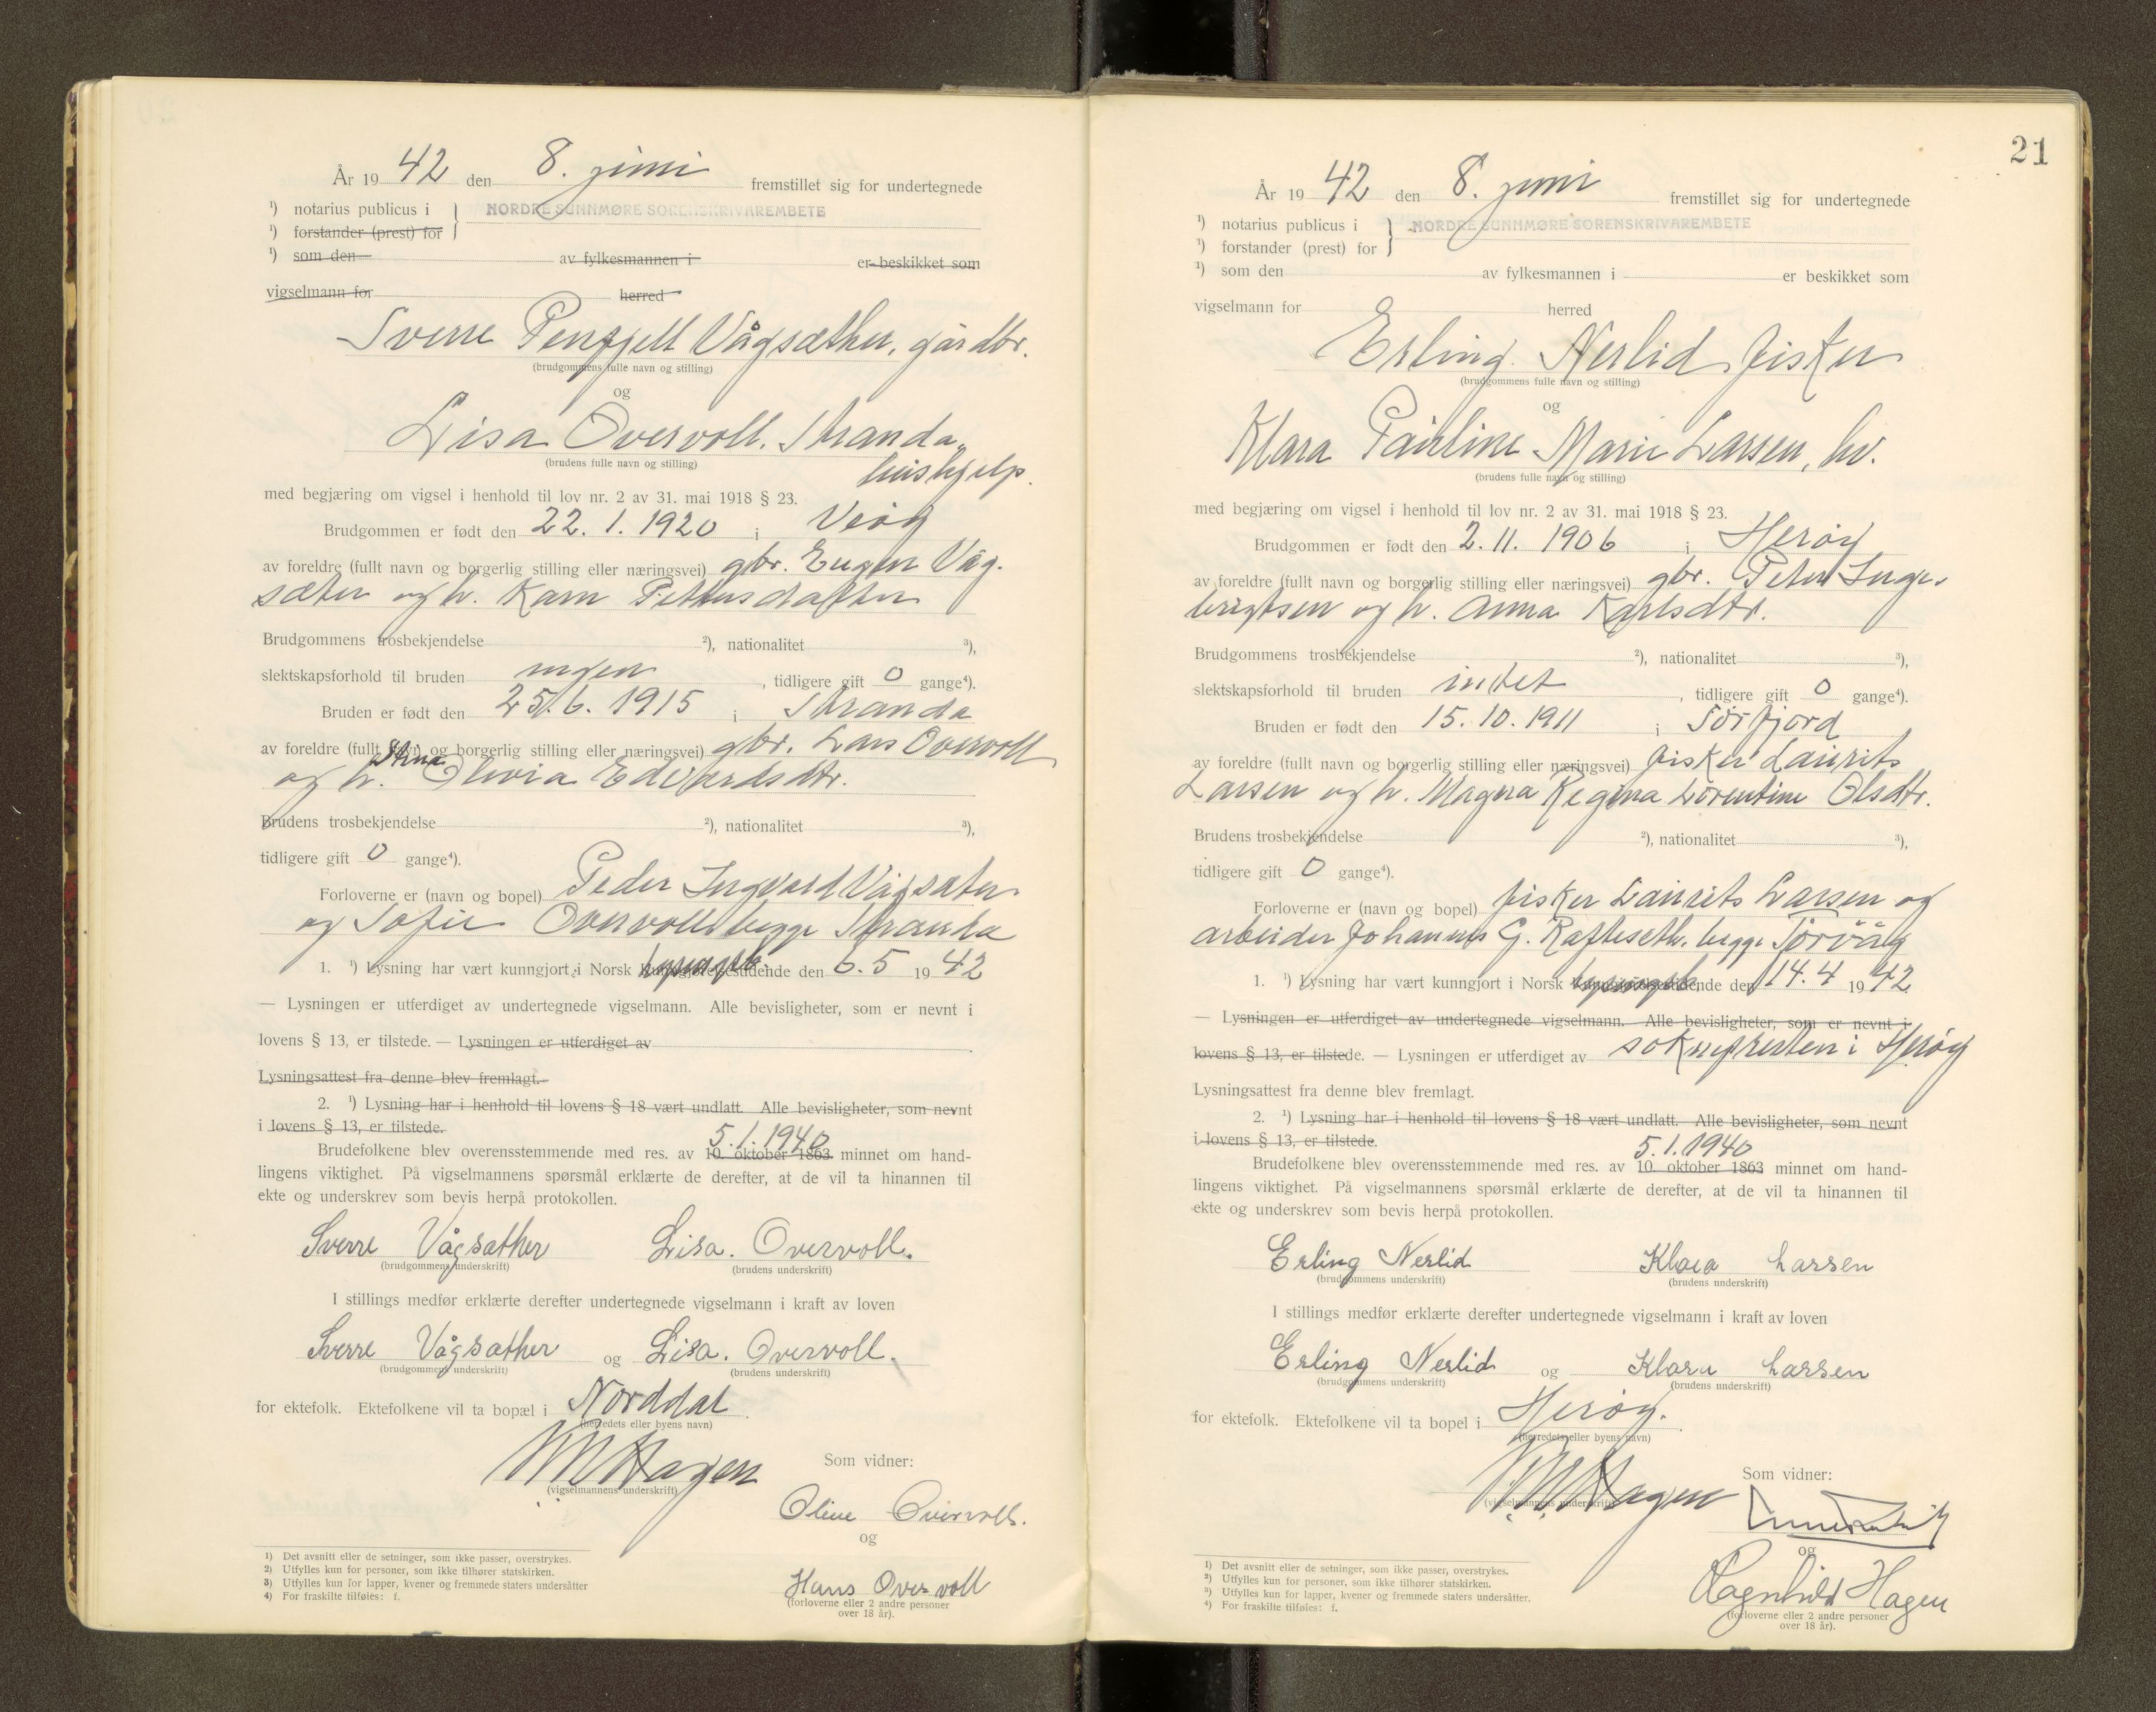 År 19 42 den 8. juni fremstillet sig for undertegnede
¹) notarius publicus i } NORDRE SUNNMØRE SORENSKRIVAREMBETE
¹) forstander (prest) for
¹) som den av fylkesmannen i er beskikket som
vigselmann for herred
Sverre Penfjell Vågsæther, gårdbr.
(brudgommens fulle navn og stilling)
og
Lisa Overvoll, Stranda,
(brudens fulle navn og stilling)
hushjelp.
med begjæring om vigsel i henhold til lov nr. 2 av 31. mai 1918 § 23.
Brudgommen er født den 22. 1. 1920 i Veøy
av foreldre (fullt navn og borgerlig stilling eller næringsvei) gbr. Eugen Våg-
sæter og h. Karn Pettersdatter
Brudgommens trosbekjendelse ²), nationalitet ³),
slektskapsforhold til bruden ingen, tidligere gift 0 gange⁴).
Bruden er født den 25. 6. 1915 i Stranda
av foreldre (fullt navn og borgerlig stilling eller næringsvei) gbr. Lars Overvoll
og h. Stina Olivia Edvardsdtr.
Brudens trosbekjendelse ²), nationalitet ³),
tidligere gift 0 gange⁴).
Forloverne er (navn og bopel) Peder Ingvard Vågsæter
og Sofie Overvoll begge Stranda
1. ¹) Lysning har vært kunngjort i Norsk lysingsbl. den 6. 5 19 42
— Lysningen er utferdiget av undertegnede vigselmann. Alle bevisligheter, som er nevnt i
lovens § 13, er tilstede. — Lysningen er utferdiget av
Lysningsattest fra denne blev fremlagt.
2. ¹) Lysning har i henhold til lovens § 18 vært undlatt. Alle bevisligheter, som nevnt
i lovens § 13, er tilstede.
5. 1. 1940
Brudefolkene blev overensstemmende med res. av 10. oktober 1863 minnet om hand-
lingens viktighet. På vigselmannens spørsmål erklærte de derefter, at de vil ta hinannen til
ekte og underskrev som bevis herpå protokollen.
Sverre Vågsæther Lisa. Overvoll.
(brudgommens underskrift) (brudens underskrift)
I stillings medfør erklærte derefter undertegnede vigselmann i kraft av loven
Sverre Vågsæther og Lisa. Overvoll.
(brudgommens underskrift) (brudens underskrift)
for ektefolk. Ektefolkene vil ta bopæl i Norddal
(herredets eller byens navn)
Hagen
(vigselmannens underskrift)
Som vidner:
Oline Overvoll.
og
Hans Overvoll
(forloverne eller 2 andre personer
over 18 år).
¹) Det avsnitt eller de setninger, som ikke passer, overstrykes.
²) Utfylles kun for personer, som ikke tilhører statskirken.
³) Utfylles kun for lapper, kvener og fremmede staters undersåtter
⁴) For fraskilte tilføies: f.
21
År 19 42 den 8. juni fremstillet sig for undertegnede
¹) notarius publicus i } NORDRE SUNNMØRE SORENSKRIVAREMBETE
¹) forstander (prest) for
¹) som den av fylkesmannen i er beskikket som
vigselmann for herred
Erling Nerlid, fisker
(brudgommens fulle navn og stilling)
og
Klara Pauline Marie Larsen, hv.
(brudens fulle navn og stilling)
med begjæring om vigsel i henhold til lov nr. 2 av 31. mai 1918 § 23.
Brudgommen er født den 2. 11. 1906 i Herøy
av foreldre (fullt navn og borgerlig stilling eller næringsvei) gbr. Peter Inge-
brigtsen og h. Anna Karlsdtr.
Brudgommens trosbekjendelse ²), nationalitet ³),
slektskapsforhold til bruden intet, tidligere gift 0 gange⁴).
Bruden er født den 15. 10. 1911 i Sørfjord
av foreldre (fullt navn og borgerlig stilling eller næringsvei) fisker Laurits
Larsen og h. Magna Regina Lorentine Olsdtr.
Brudens trosbekjendelse ²), nationalitet ³),
tidligere gift 0 gange⁴).
Forloverne er (navn og bopel) fisker Laurits Larsen og
arbeider Johannes G. Rafteseth. begge Tørvåg
1. ¹) Lysning har vært kunngjort i Norsk lysingsbl. den 14. 4 19 42
— Lysningen er utferdiget av undertegnede vigselmann. Alle bevisligheter, som er nevnt i
lovens § 13, er tilstede. — Lysningen er utferdiget av soknepresten i Herøy
Lysningsattest fra denne blev fremlagt.
2. ¹) Lysning har i henhold til lovens § 18 vært undlatt. Alle bevisligheter, som nevnt
i lovens § 13, er tilstede.
5. 1. 1940
Brudefolkene blev overensstemmende med res. av 10. oktober 1863 minnet om hand-
lingens viktighet. På vigselmannens spørsmål erklærte de derefter, at de vil ta hinannen til
ekte og underskrev som bevis herpå protokollen.
Erling Nerlid Klara Larsen
(brudgommens underskrift) (brudens underskrift)
I stillings medfør erklærte derefter undertegnede vigselmann i kraft av loven
Erling Nerlid og Klara Larsen
(brudgommens underskrift) (brudens underskrift)
for ektefolk. Ektefolkene vil ta bopel i Herøy.
(herredets eller byens navn)
Hagen
(vigselmannens underskrift)
Som vidner:
og
Ragnhild Hagen
(forloverne eller 2 andre personer
over 18 år).
¹) Det avsnitt eller de setninger, som ikke passer, overstrykes.
²) Utfylles kun for personer, som ikke tilhører statskirken.
³) Utfylles kun for lapper, kvener og fremmede staters undersåtter.
⁴) For fraskilte tilføies: f.